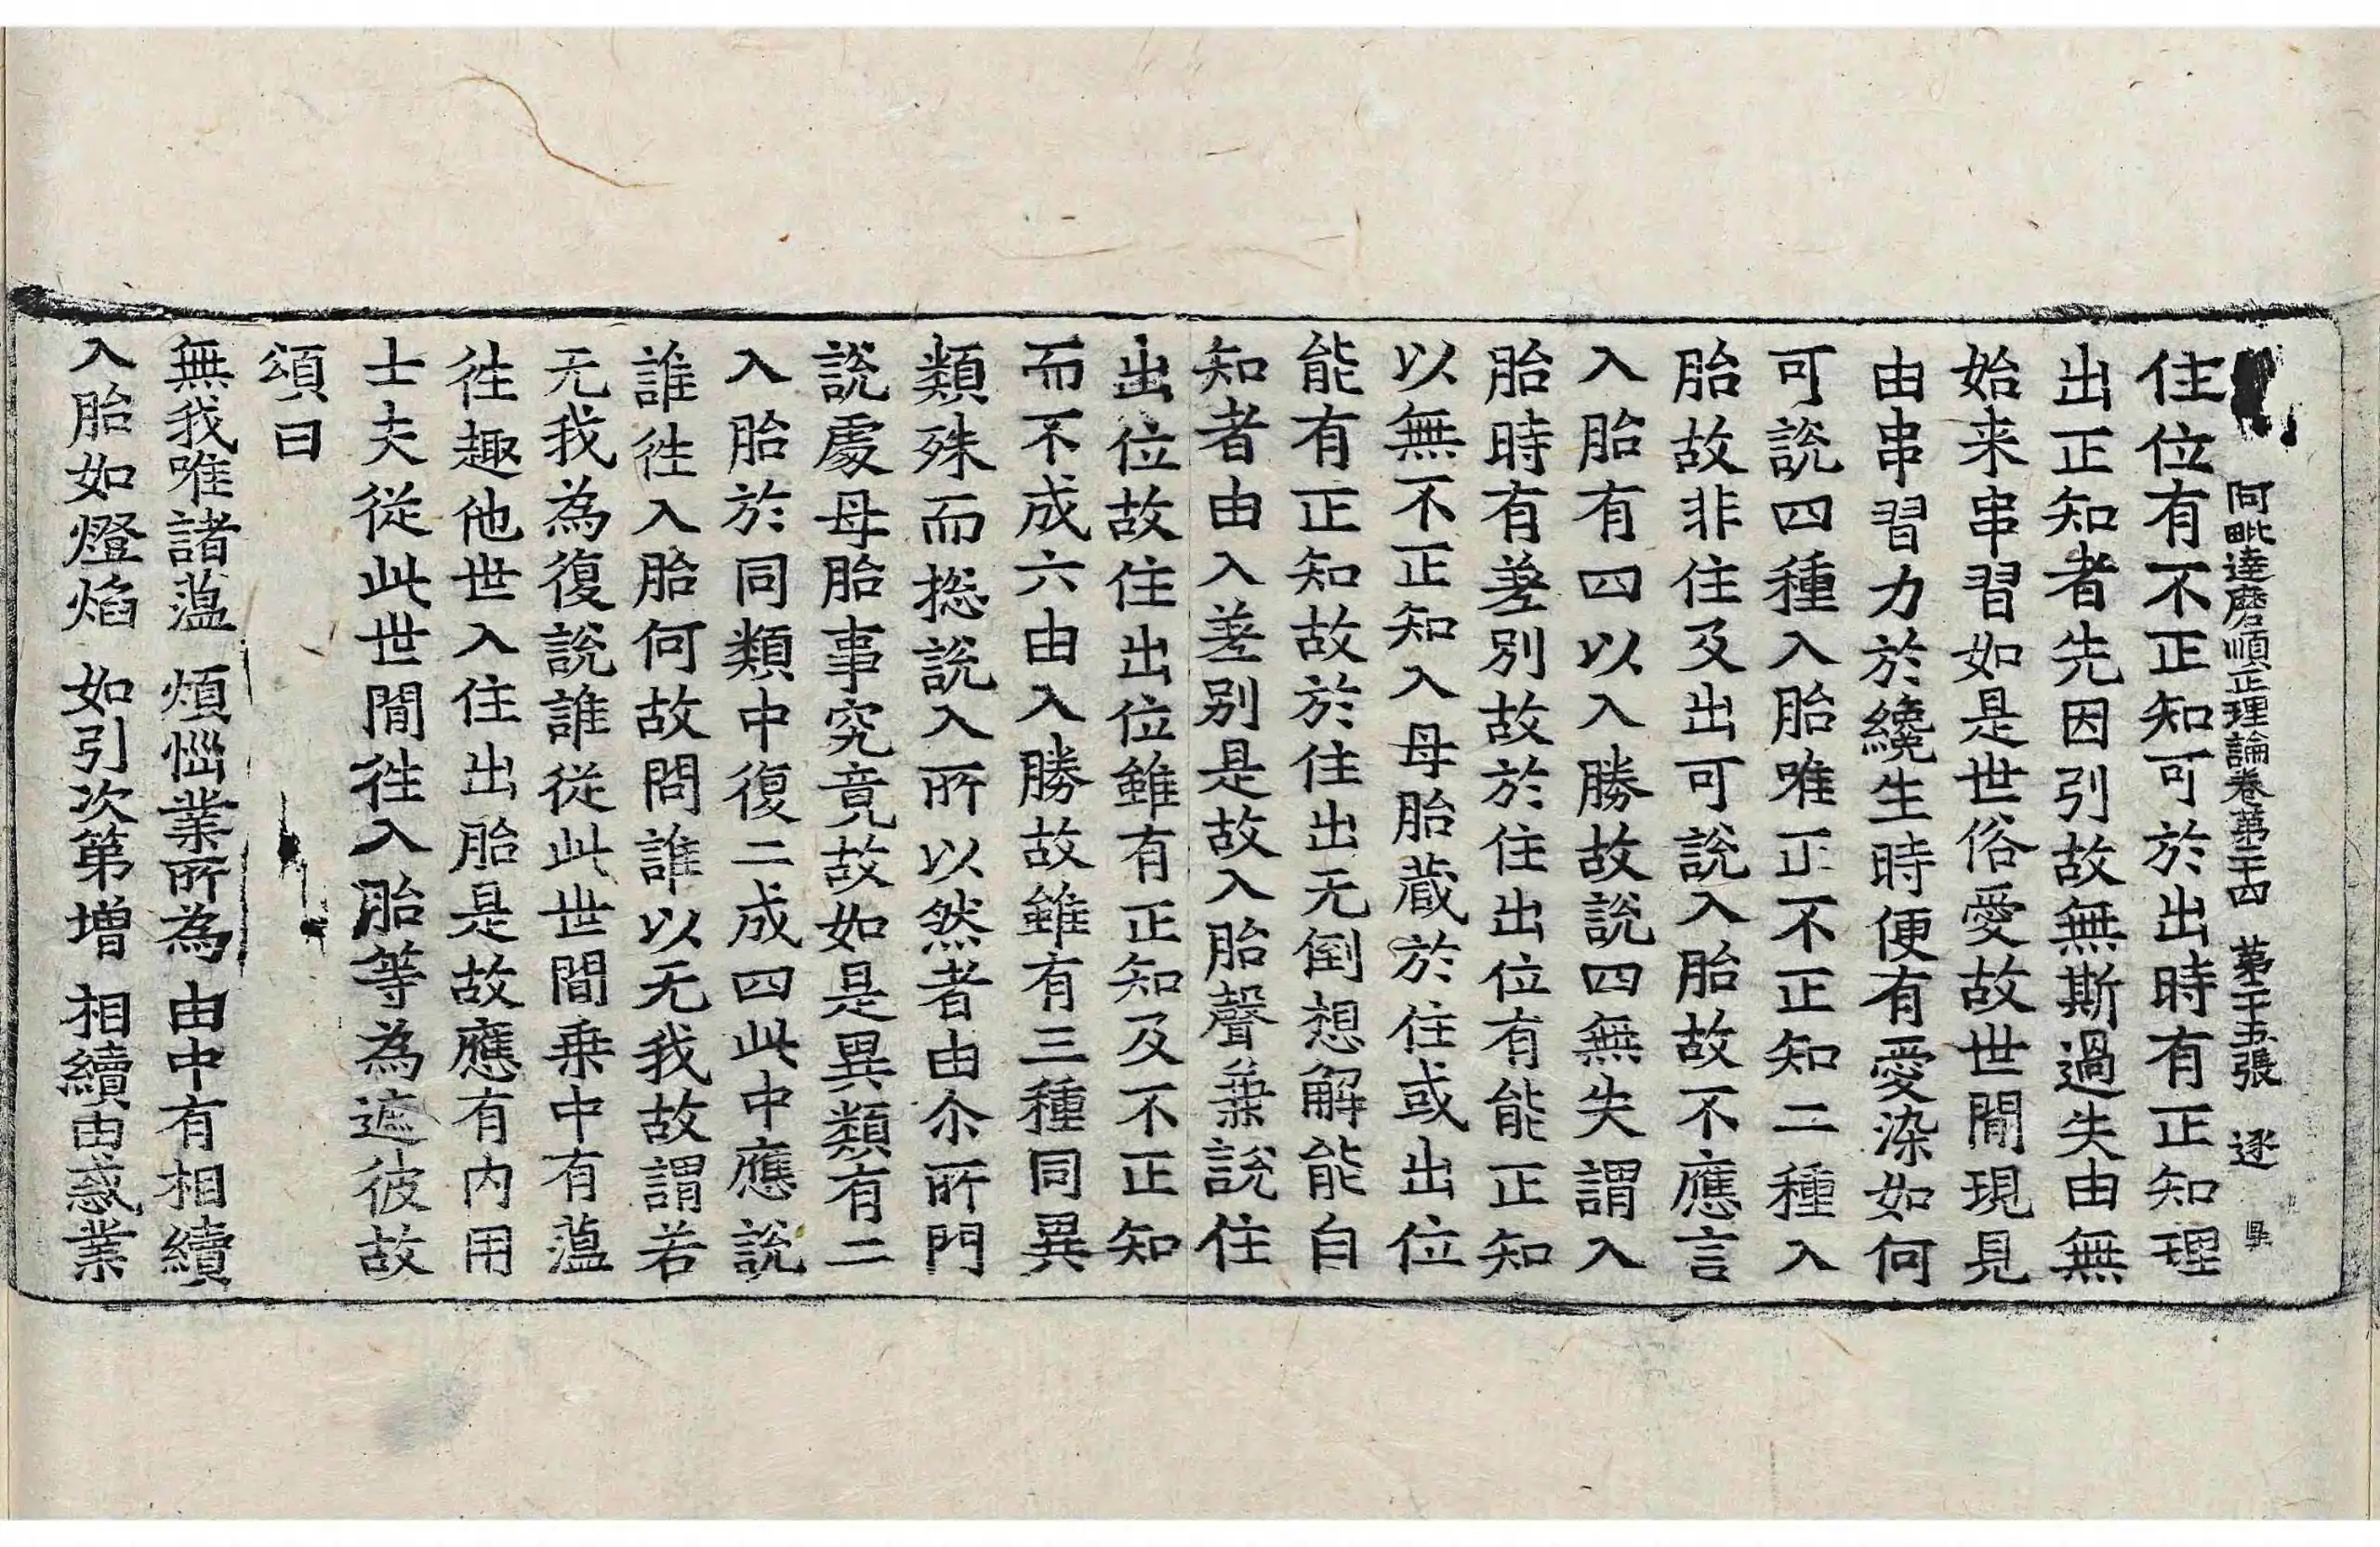 阿毗達磨順正理論卷第二十四 第二十五張 逐
住位有不正知可於出時有正知理
出正知者先因引故無斯過失由無
始来串習如是世俗愛故世間現見
由串習力於纔生時便有愛染如何
可說四種入胎唯正不正知二種入
胎故非住及出可說入胎故不應言
入胎有四以入勝故說四無失謂入
胎時有差別故於住出位有能正知
以無不正知入母胎藏於住或出位
能有正知故於住出无倒想解能自
知者由入差别是故入胎聲兼說住
出位故住出位雖有正知及不正知
而不成六由入勝故雖有三種同異
類殊而揔說入所以然者由尒所門
說處母胎事究竟故如是異類有二
入胎於同類中復二成四此中應說
誰徃入胎何故問誰以无我故謂若
无我為復說誰從此世間乗中有蕰
徃趣他世入住出胎是故應有内用
士夫從此世間徃入胎等為遮彼故
頌曰
無我唯諸蕰 煩惱業所為 由中有相續
入胎如燈焰 如引次第增 相續由惑業